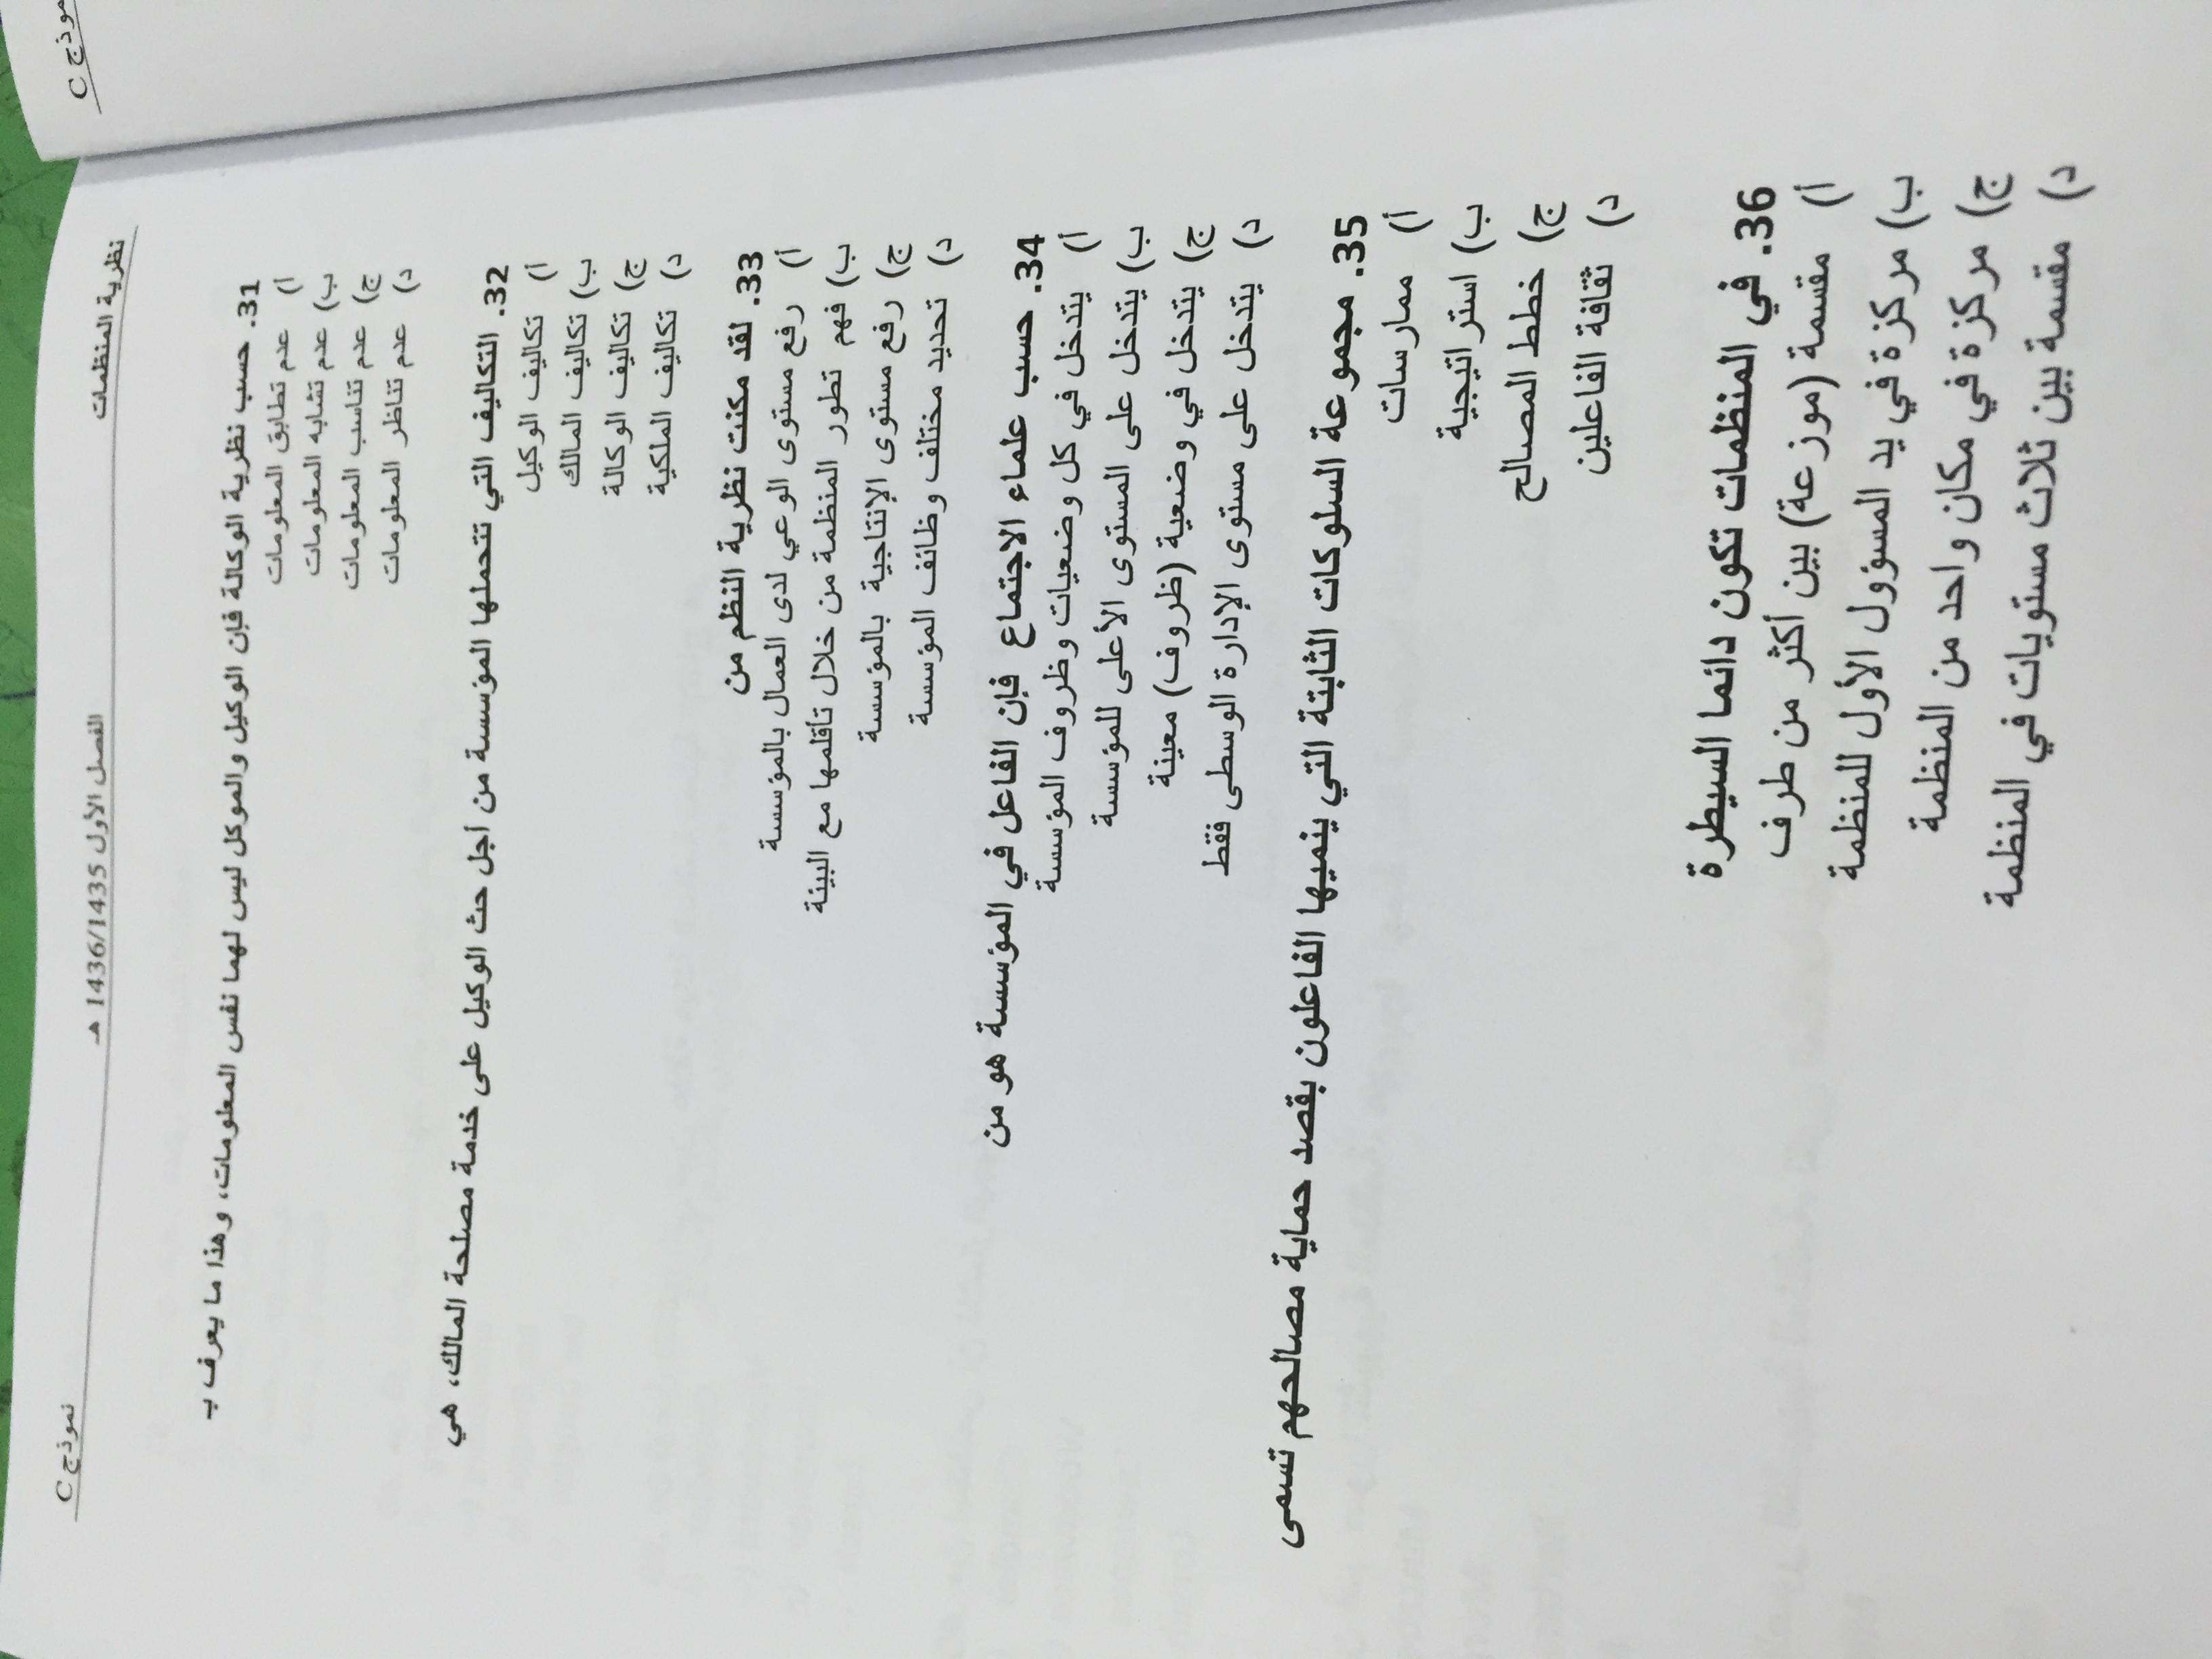 نموذج C
نظرية المنظمات
الفصل الأول 1436/1435 هـ
نموذج C
31. حسب نظرية الوكالة فإن الوكيل والموكل ليس لهما نفس المعلومات، وهذا ما يعرف بـ
أ) عدم تطابق المعلومات
ب) عدم تشابه المعلومات
ج) عدم تناسب المعلومات
د) عدم تناظر المعلومات
32. التكاليف التي تتحملها المؤسسة من أجل حث الوكيل على خدمة مصلحة المالك، هي
أ) تكاليف الوكيل
ب) تكاليف المالك
ج) تكاليف الوكالة
د) تكاليف الملكية
33. لقد مكنت نظرية النظم من
أ) رفع مستوى الوعي لدى العمال بالمؤسسة
ب) فهم تطور المنظمة من خلال تأقلمها مع البيئة
ج) رفع مستوى الإنتاجية بالمؤسسة
د) تحديد مختلف وظائف المؤسسة
34. حسب علماء الاجتماع فإن الفاعل في المؤسسة هو من
أ) يتدخل في كل وضعيات وظروف المؤسسة
ب) يتدخل على المستوى الأعلى للمؤسسة
ج) يتدخل في وضعية (ظروف) معينة
د) يتدخل على مستوى الإدارة الوسطى فقط
35. مجموعة السلوكات الثابتة التي ينميها الفاعلون بقصد حماية مصالحهم تسمى
أ) ممارسات
ب) استراتيجية
ج) خطط المصالح
د) ثقافة الفاعلين
36. في المنظمات تكون دائما السيطرة
أ) مقسمة (موزعة) بين أكثر من طرف
ب) مركزة في يد المسؤول الأول للمنظمة
ج) مركزة في مكان واحد من المنظمة
د) مقسمة بين ثلاث مستويات في المنظمة